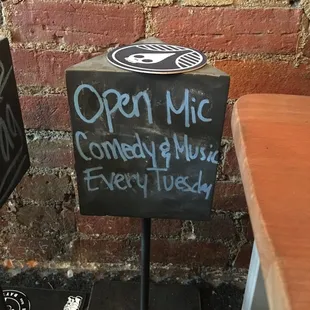 Open Mic
Comedy & Music
Every Tuesday